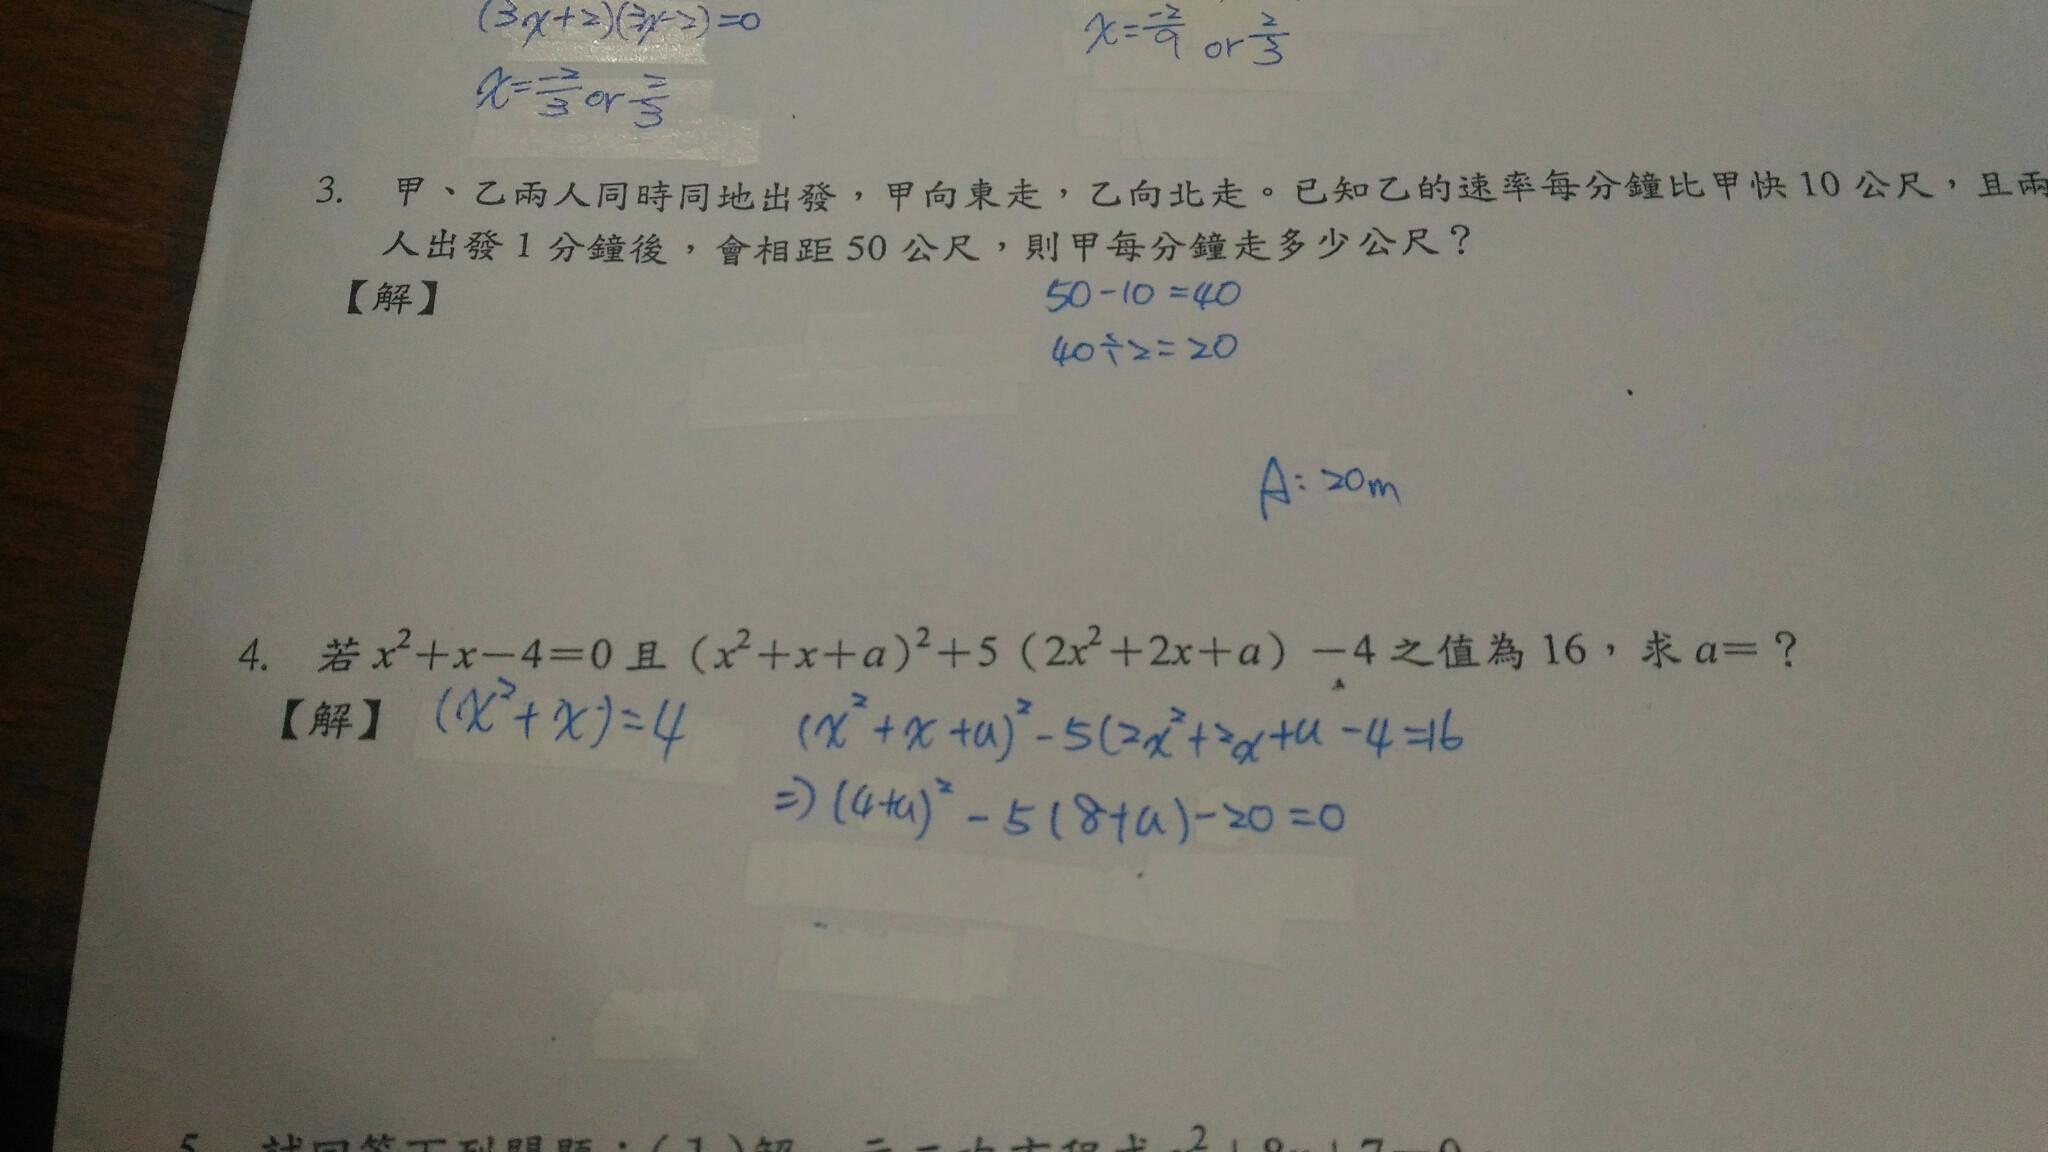 (3x+2)(3x-2)=0
x=-2/3 or 2/3
x=-2/9 or 2/3
3. 甲、乙兩人同時同地出發，甲向東走，乙向北走。已知乙的速率每分鐘比甲快 10 公尺，且兩
人出發 1 分鐘後，會相距 50 公尺，則甲每分鐘走多少公尺？
【解】
50-10=40
40÷2=20
A:20m
4. 若 x²+x−4=0 且（x²+x+a）²+5（2x²+2x+a）−4 之值為 16，求 a=？
【解】 (x²+x)=4 (x²+x+a)²-5(2x²+2x+a-4=16
⇒(4+a)²-5(8+a)-20=0
5. 試回答下列問題：(1)解一元二次方程式 x²+8x+7=0